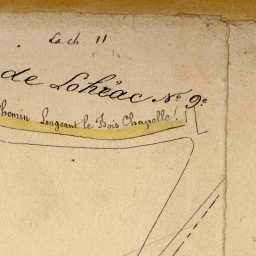 La ch. 11
de Lohéac N.º 9.e
Chemin Longeant le Bois Chapelle.